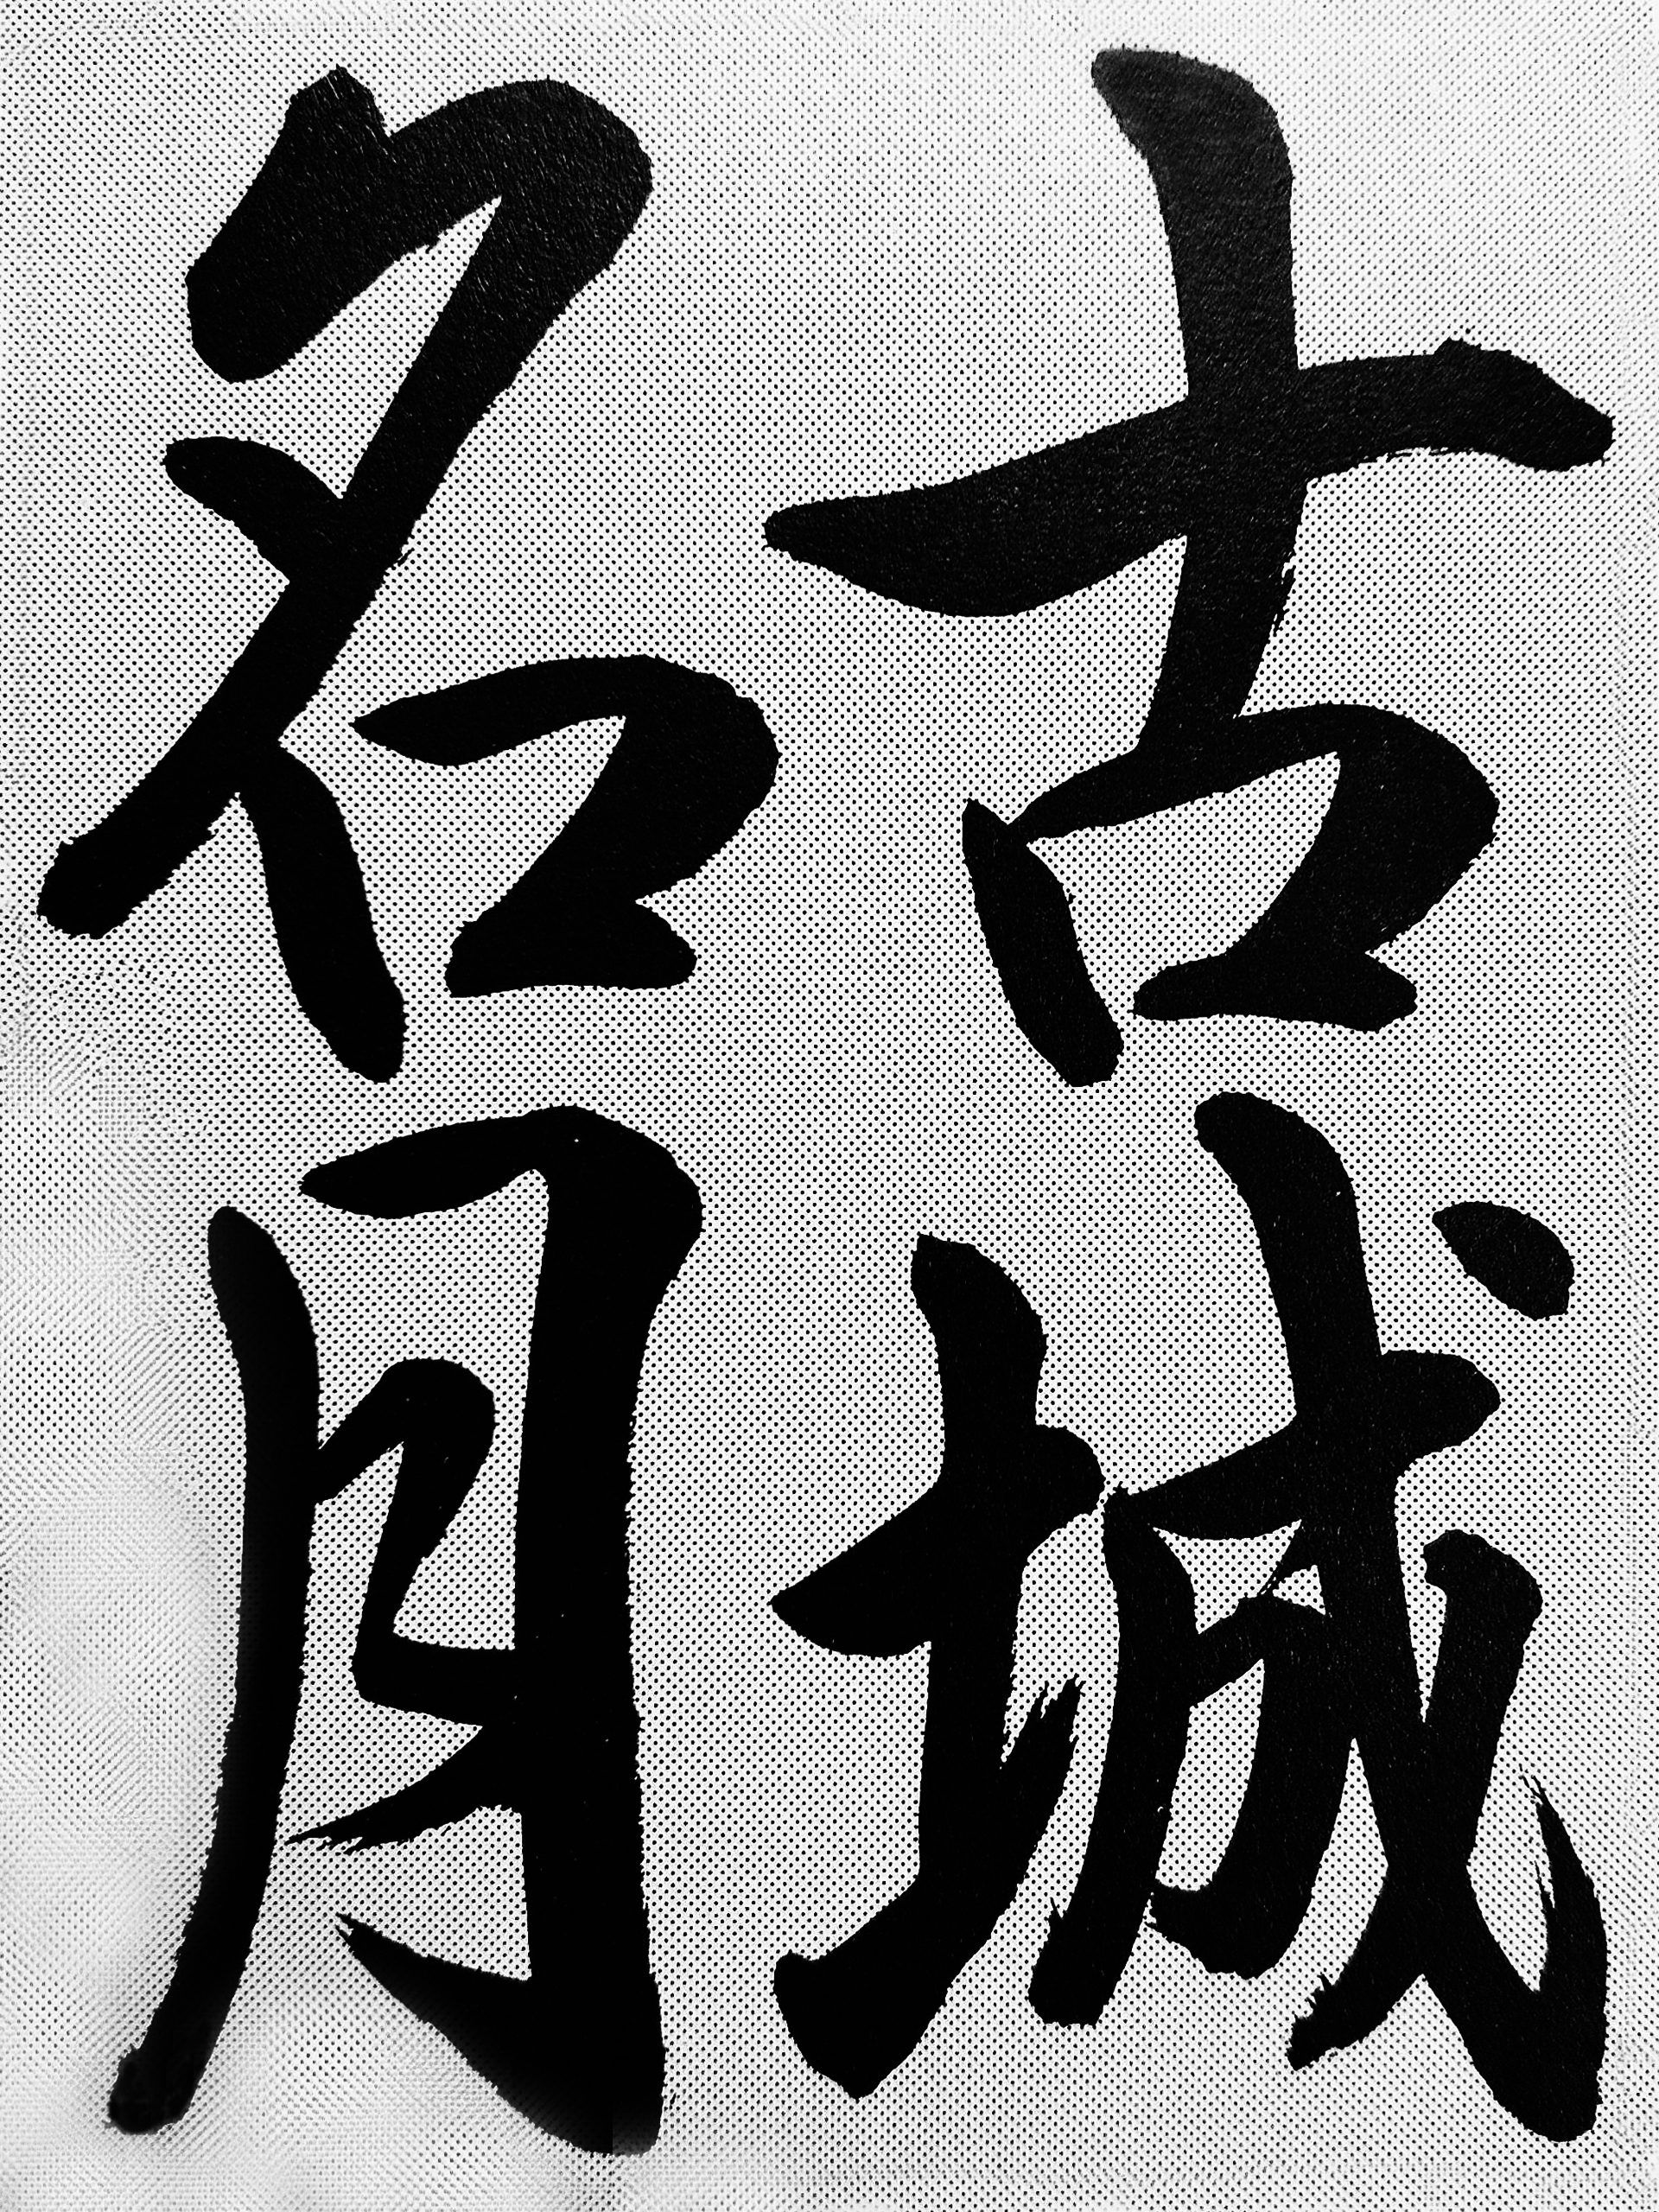 古城
名月